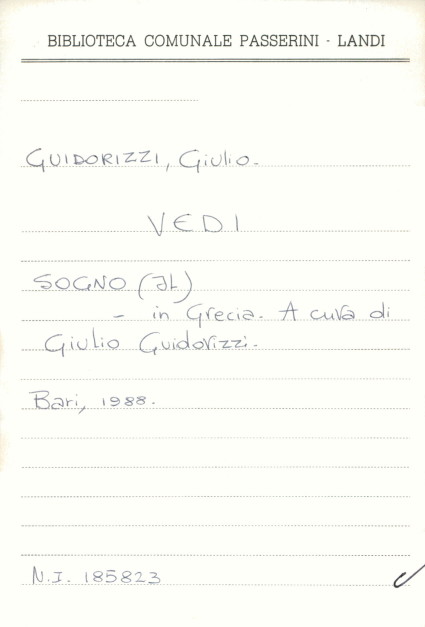 BIBLIOTECA COMUNALE PASSERINI - LANDI
GUIDORIZZI, Giulio.
VEDI
SOGNO (IL)
- in Grecia. A cura di
Giulio Guidorizzi.
Bari, 1988.
N.I. 185823